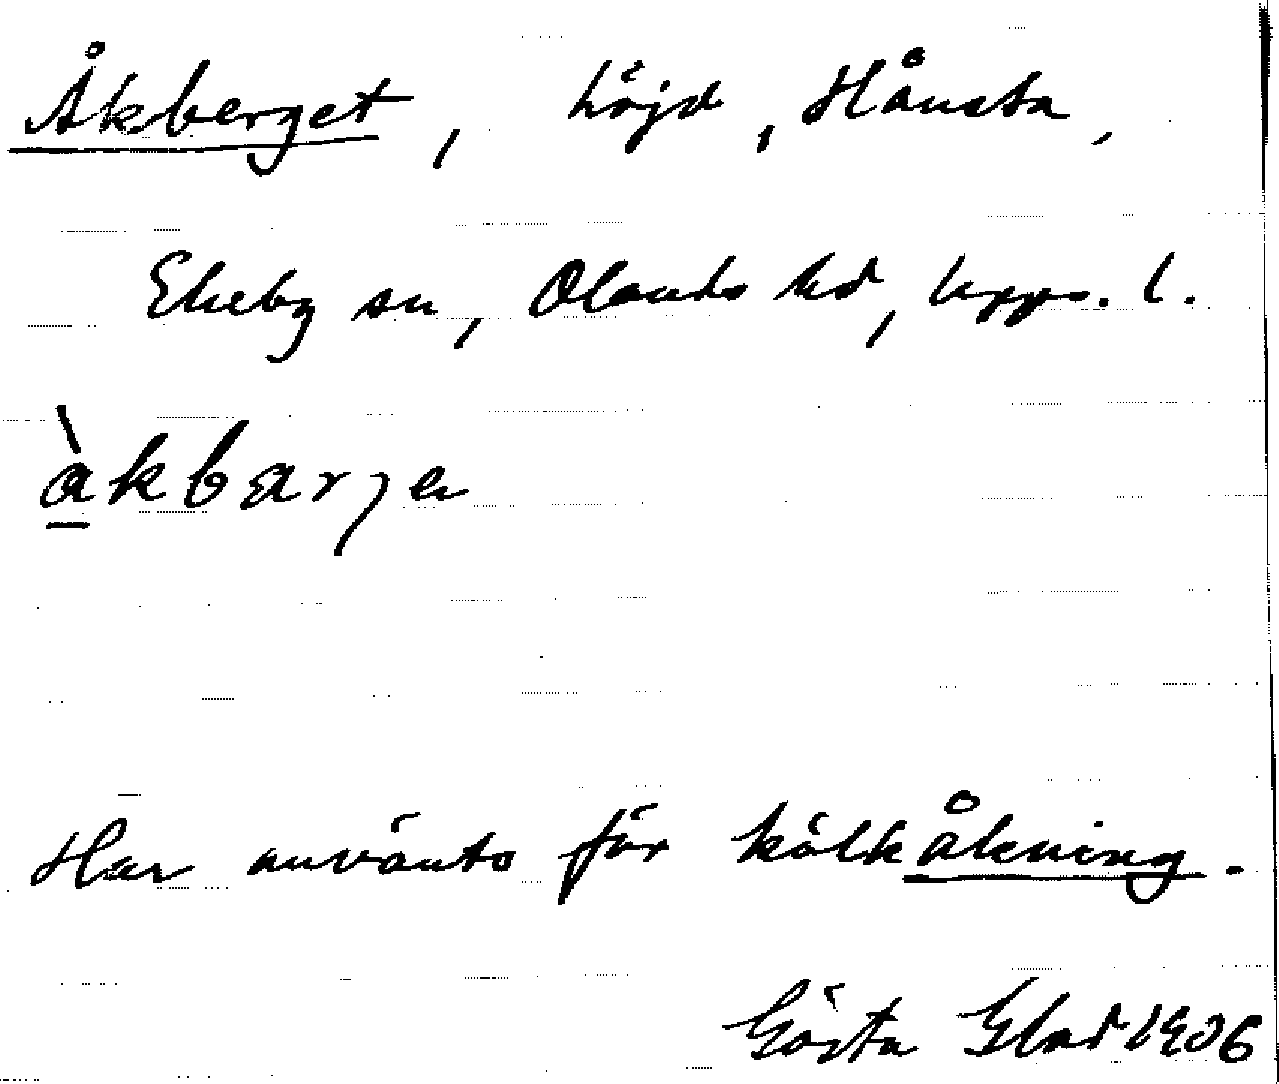 Åkberget, höjd, Hånsta,
Ekeby sn, Olands hd, Upps. l.
àkbærjen
Har använts för kälkåkning.
Gösta Glad 1906